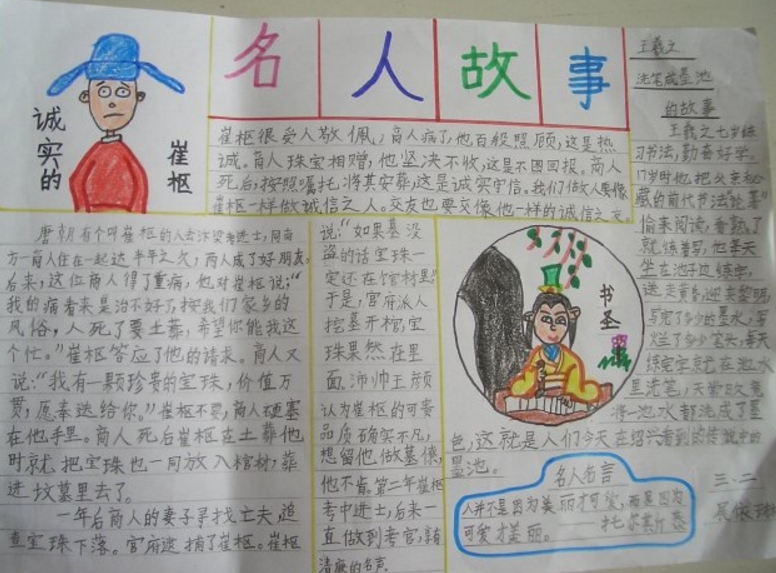 名人故事
诚实的
崔枢
崔枢很受人敬佩,商人病了,他百般照顾,这是热
诚。商人珠宝相赠,他坚决不收,这是不图回报。商人
死后,按照嘱托,将其安葬,这是诚实守信。我们做人要像
崔枢一样做诚信之人。交友也要交像他一样的诚信之友。
唐朝有个叫崔枢的人去汴梁考进士,同南
方一商人住在一起达半年之久,两人成了好朋友。
后来,这位商人得了重病,他对崔枢说:“
我的病看来是治不好了,按我们家乡的
风俗,人死了要土葬,希望你能我这
个忙。”崔枢答应了他的请求。商人又
说:“我有一颗珍贵的宝珠,价值万
贯,愿奉送给你。”崔枢不要,商人硬塞
在他手里。商人死后崔枢在土葬他
时就把宝珠也一同放入棺材,葬
进坟墓里去了。
一年后商人的妻子寻找亡夫,追
查宝珠下落。官府逮捕了崔枢。崔枢
说:“如果墓没
盗的话宝珠一
定还在馆材里”
于是,官府派人
挖墓开棺,宝
珠果然在里
面。沛帅王颜
认为崔枢的可贵
品质确实不凡,
想留他做幕僚,
他不肯。第二年崔枢
考中进士,后来一
直做到考官,享有
清廉的名声。
王羲之
洗笔成墨池
的故事
王羲之七岁练
习书法,勤奋好学。
17岁时他把父亲秘
藏的前代书法论著
偷来阅读,看熟了
就练着写,他每天
坐在池子边练字,
送走黄昏,迎来黎明,
写完了多少的墨水,写
烂了多少笔头,每天
练完字就在池水
里洗笔,天长日久竟
将一池水都洗成了墨
色,这就是人们今天在绍兴看到的传说中的
墨池。
书圣
名人名言
人并不是因为美丽才可爱,而是因为
可爱才美丽。 托尔斯泰
三.二